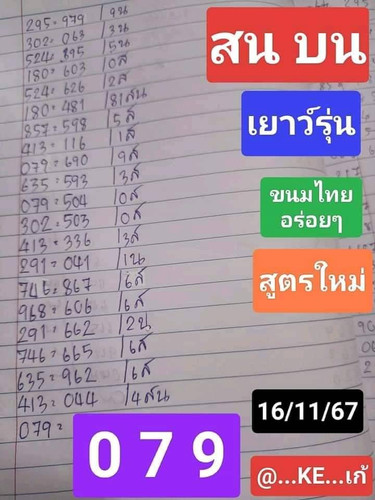 295 = 979 /9น
302 = 063 /3น
524 = 895 /5น
180 = 603 /0ส
524 = 626 /2ส
180 = 481 /81สน
857 = 598 /5ส
413 = 116 /1ส
079 = 690 /9ส
635 = 593 /3ส
079 = 504 /0ส
302 = 503 /0ส
413 = 336 /3ส
291 = 041 /1น
746 = 867 /6ส
968 = 606 /6ส
291 = 662 /2น
746 = 665 /6ส
635 = 962 /6ส
413 = 044 /4สน
079 =
สน บน
เยาว์รุ่น
ขนมไทย
อร่อยๆ
สูตรใหม่
16/11/67
0 7 9
@...KE...เก้